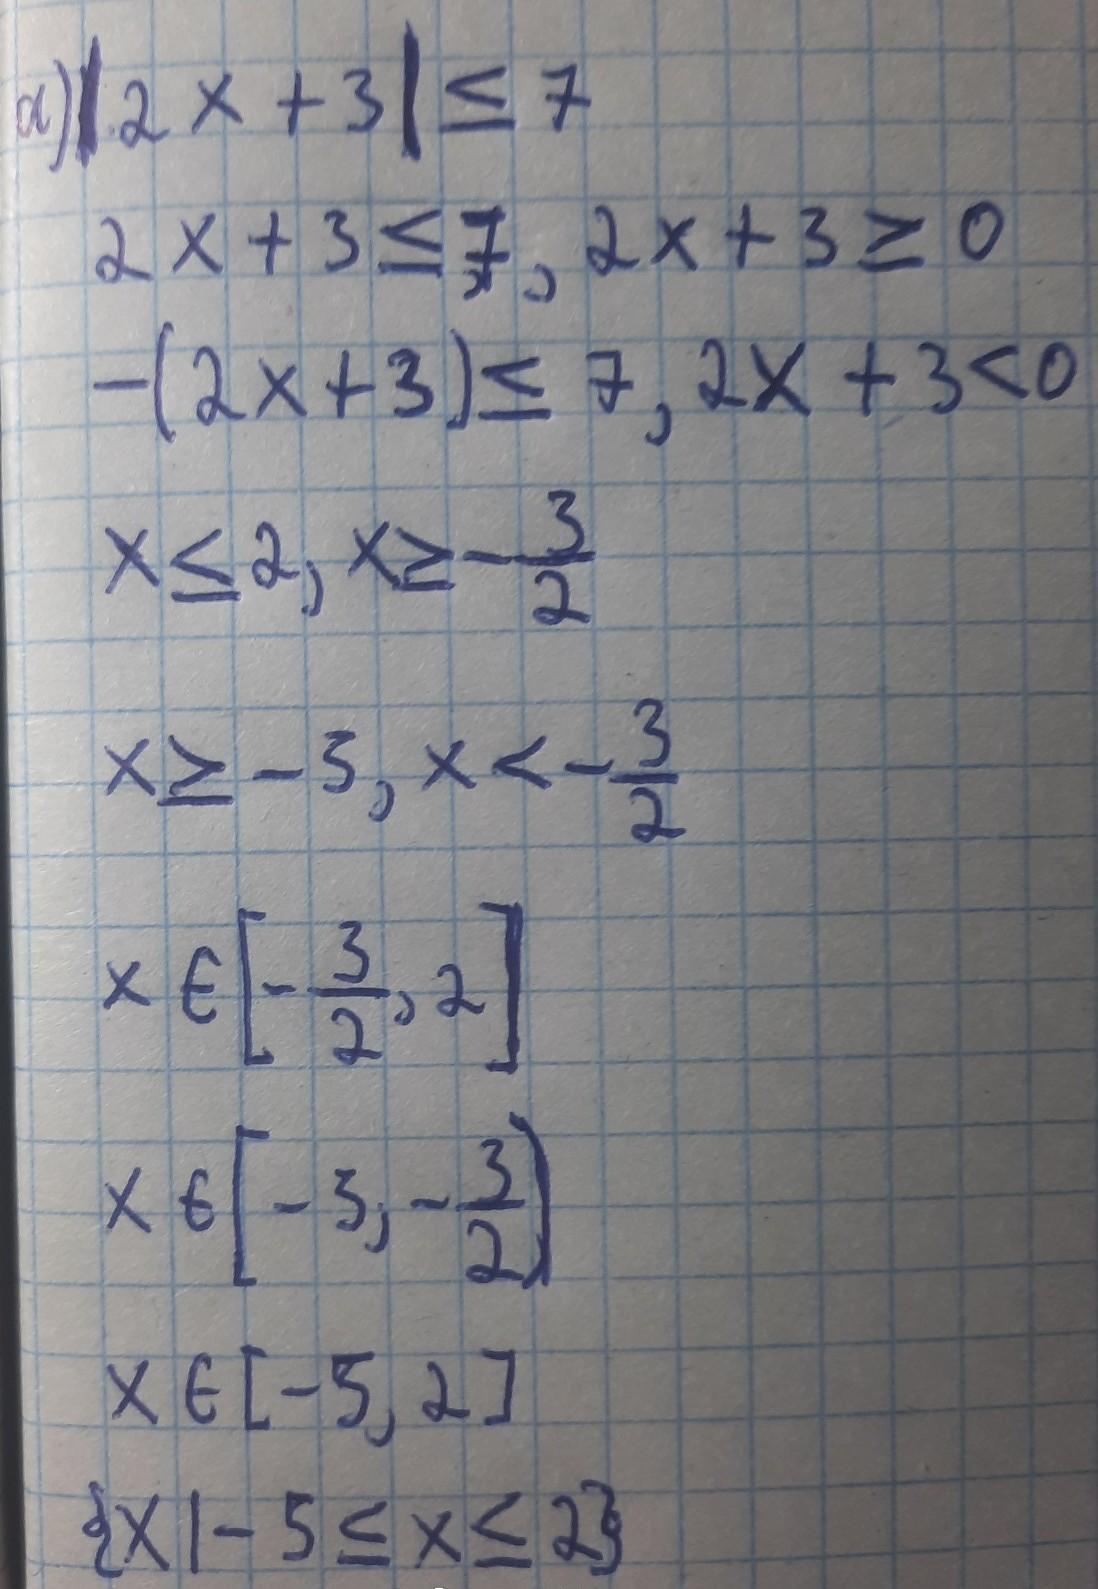 a) |2x + 3| ≤ 7
2x + 3 ≤ 7, 2x + 3 ≥ 0
-(2x+3) ≤ 7, 2x + 3 < 0
x ≤ 2, x ≥ -3/2
x ≥ -5, x < -3/2
x ∈ [-3/2, 2]
x ∈ [-5, -3/2)
x ∈ [-5, 2]
{x | -5 ≤ x ≤ 2}